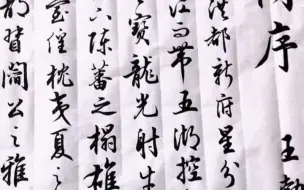 序
王勃
洪都新府星分
江而帶五湖控
寶龍光射牛
下陳蕃之榻雄
隍枕夷夏之
都督閻公之雅